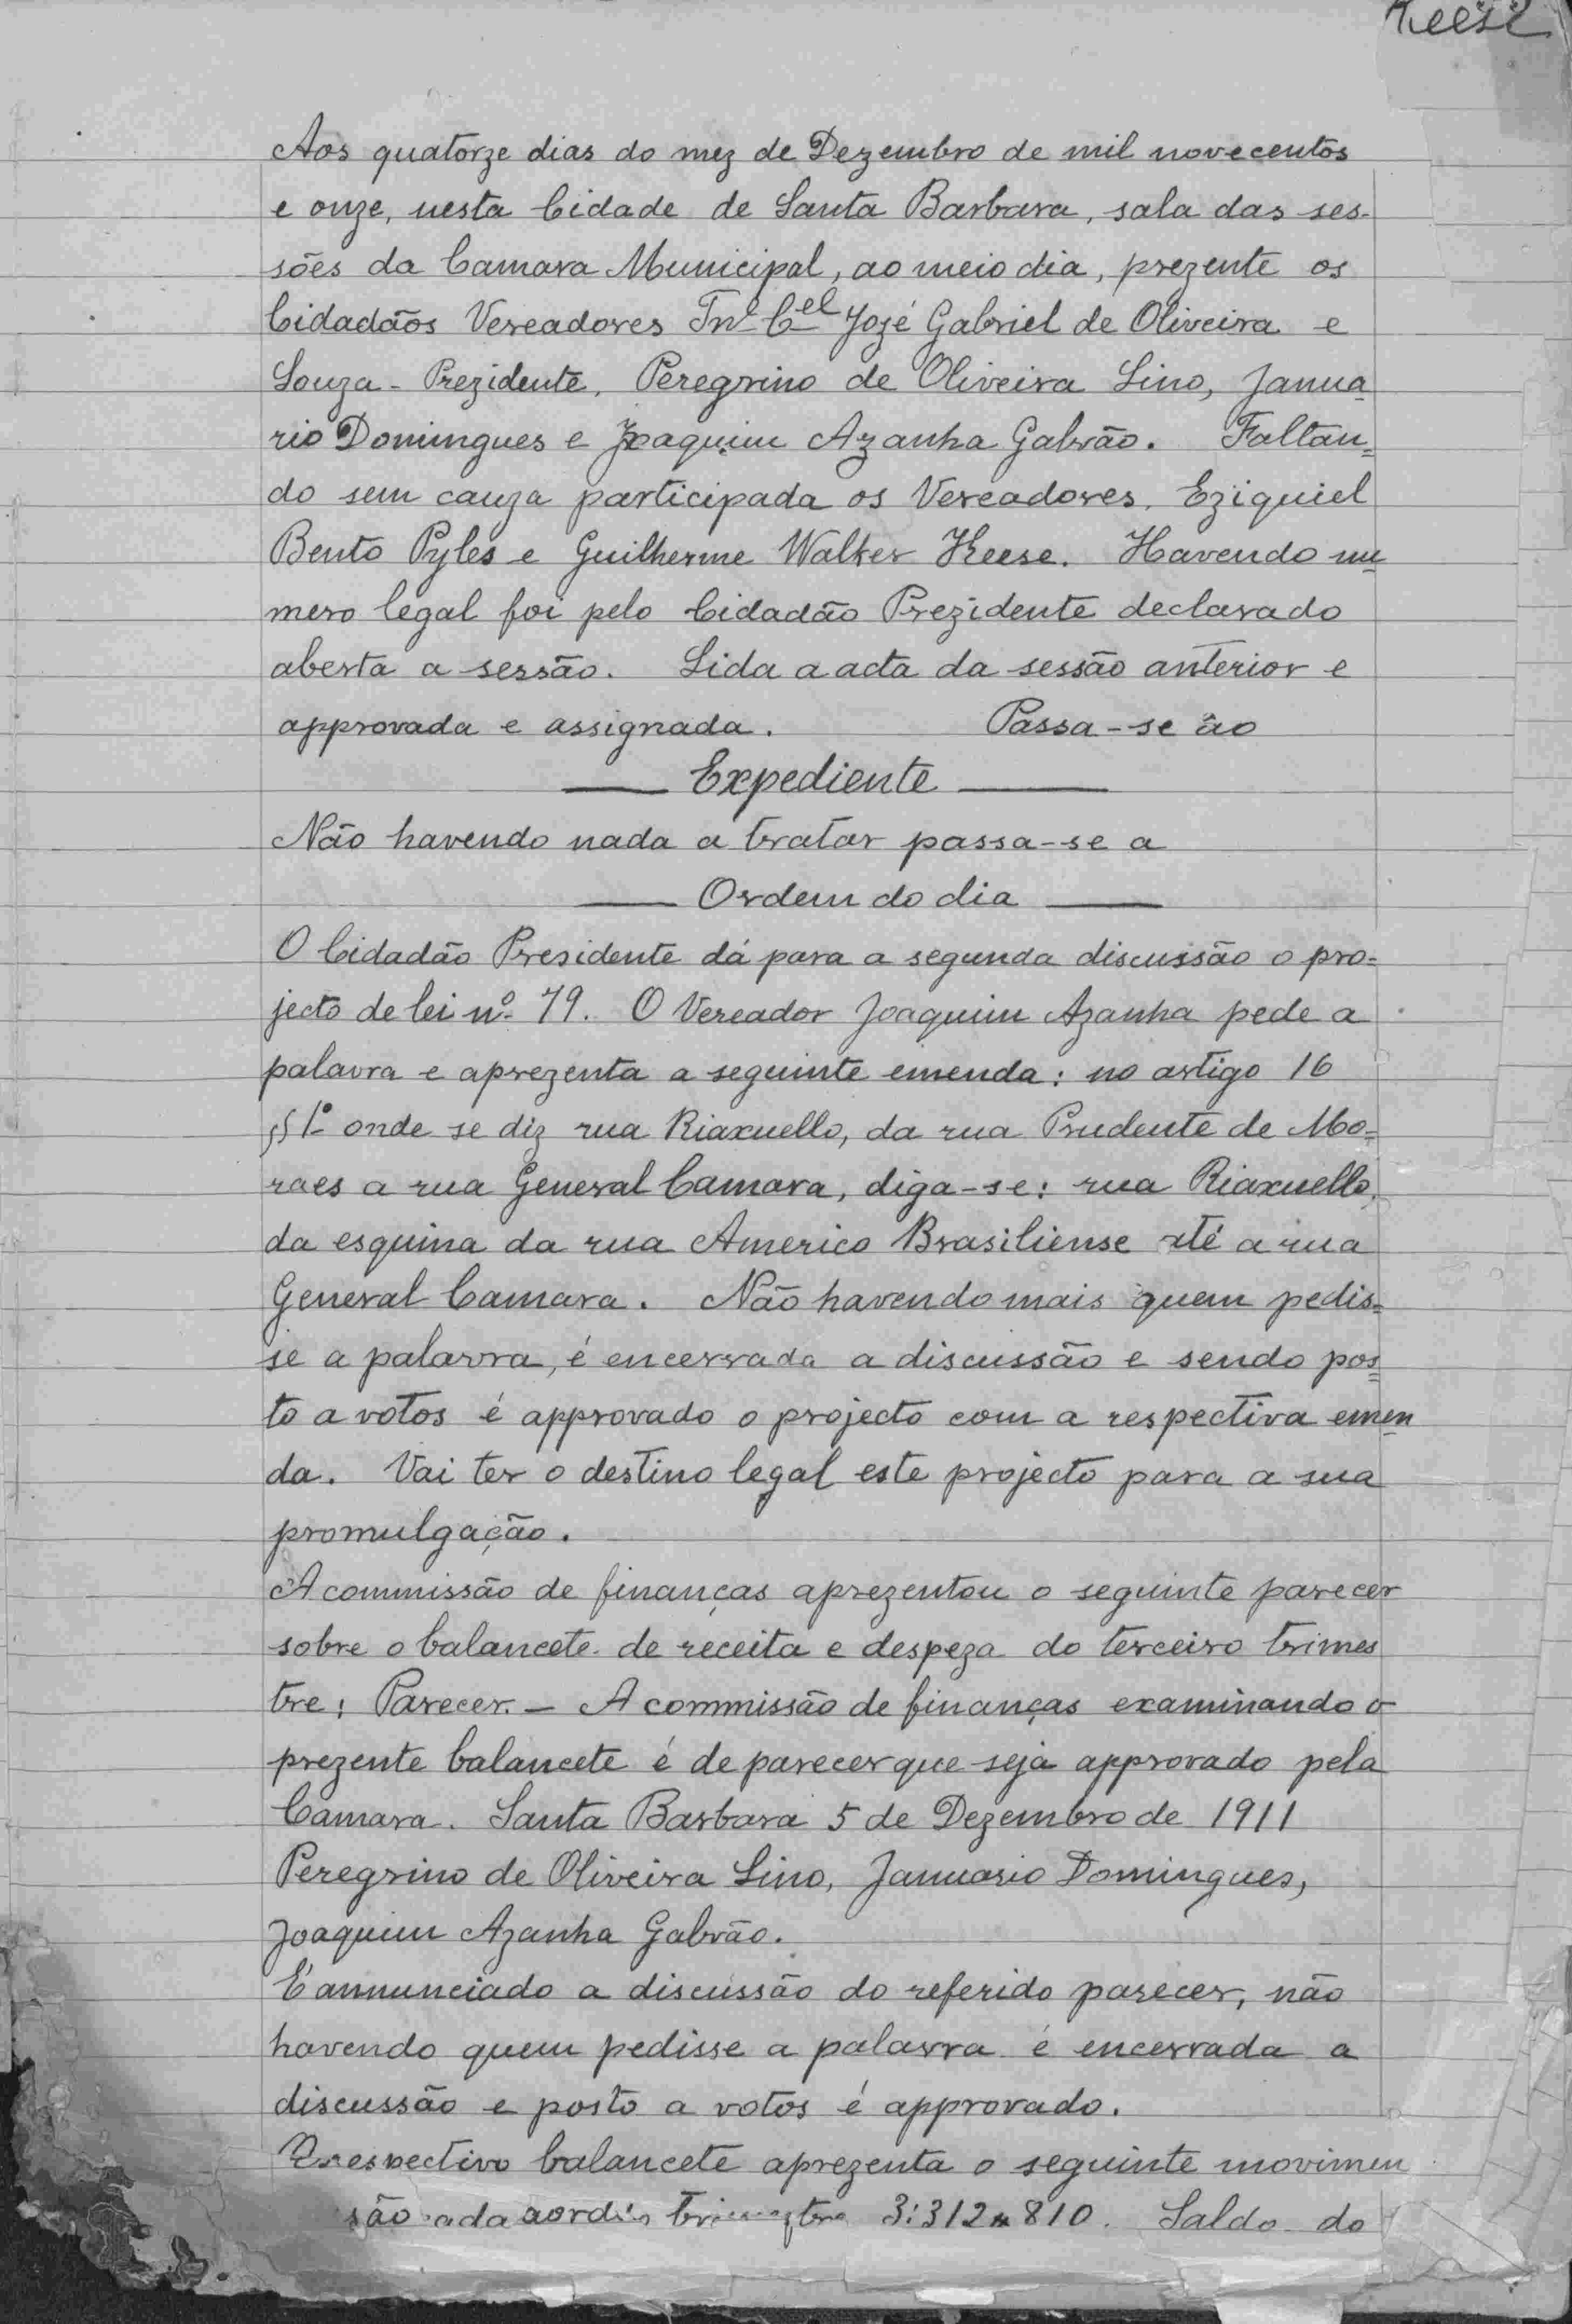 Keese
Aos quatorze dias do mez de Dezembro de mil novecentos
e onze, nesta Cidade de Santa Barbara, sala das ses-
sões da Camara Municipal, ao meio dia, prezente os
Cidadãos Vereadores Tne Cel José Gabriel de Oliveira e
Souza - Prezidente, Peregrino de Oliveira Lino, Janua
rio Domingues e Joaquim Azanha Galvão. Faltan=
do sem cauza participada os Vereadores, Eziquiel
Bento Pyles e Guilherme Walker Keese. Havendo nu
mero legal foi pelo Cidadão Prezidente declarado
aberta a sessão. Lida a acta da sessão anterior e
approvada e assignada. Passa-se ao
Expediente
Não havendo nada a tratar passa-se a
Ordem do dia
O Cidadão Presidente dá para a segunda discussão o pro=
jecto de lei nº 79. O Vereador Joaquim Azanha pede a
palavra e aprezenta a seguinte emenda: no artigo 16
§ 1º onde se diz rua Riaxuello, da rua Prudente de Mo=
raes a rua General Camara, diga-se: rua Riaxuello,
da esquina da rua Americo Brasiliense até a rua
General Camara. Não havendo mais quem pedis=
se a palavra, é encerrada a discussão e sendo pos=
to a votos é approvado o projecto com a respectiva emen
da. Vai ter o destino legal este projecto para a sua
promulgação.
A commissão de finanças aprezentou o seguinte parecer
sobre o balancete de receita e despeza do terceiro trimes
tre: Parecer. - A commissão de finanças examinando o
prezente balancete é de parecer que seja approvado pela
Camara. Santa Barbara 5 de Dezembro de 1911
Peregrino de Oliveira Lino, Januario Domingues,
Joaquim Azanha Galvão.
É annunciado a discussão do referido parecer, não
havendo quem pedisse a palavra é encerrada a
discussão e posto a votos é approvado.
O respectivo balancete aprezenta o seguinte movimen
trimestre 3:312$810. Saldo do